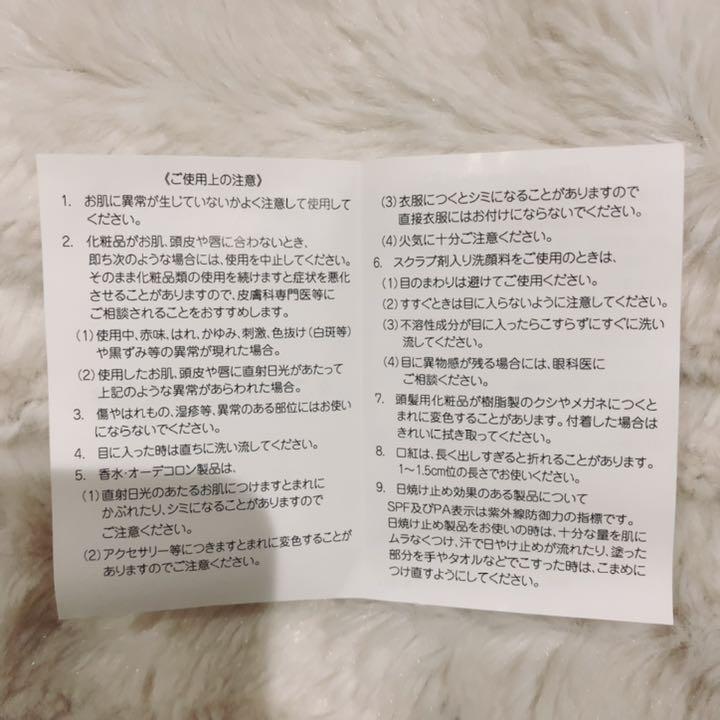 《ご使用上の注意》
1. お肌に異常が生じていないかよく注意して使用して
ください。
2. 化粧品がお肌、頭皮や唇に合わないとき、
即ち次のような場合には、使用を中止してください。
そのまま化粧品類の使用を続けますと症状を悪化
させることがありますので、皮膚科専門医等に
ご相談されることをおすすめします。
(1)使用中、赤味、はれ、かゆみ、刺激、色抜け(白斑等)
や黒ずみ等の異常が現れた場合。
(2)使用したお肌、頭皮や唇に直射日光があたって
上記のような異常があらわれた場合。
3. 傷やはれもの、湿疹等、異常のある部位にはお使い
にならないでください。
4. 目に入った時は直ちに洗い流してください。
5. 香水・オーデコロン製品は、
(1)直射日光のあたるお肌につけますとまれに
かぶれたり、シミになることがありますので
ご注意ください。
(2)アクセサリー等につきますとまれに変色することが
ありますのでご注意ください。
(3)衣服につくとシミになることがありますので
直接衣服にはお付けにならないでください。
(4)火気に十分ご注意ください。
6. スクラブ剤入り洗顔料をご使用のときは、
(1)目のまわりは避けてご使用ください。
(2)すすぐときは目に入らないように注意してください。
(3)不溶性成分が目に入ったらこすらずにすぐに洗い
流してください。
(4)目に異物感が残る場合には、眼科医に
ご相談ください。
7. 頭髪用化粧品が樹脂製のクシやメガネにつくと
まれに変色することがあります。付着した場合は
きれいに拭き取ってください。
8. 口紅は、長く出しすぎると折れることがあります。
1〜1.5cm位の長さでお使いください。
9. 日焼け止め効果のある製品について
SPF及びPA表示は紫外線防御力の指標です。
日焼け止め製品をお使いの時は、十分な量を肌に
ムラなくつけ、汗で日やけ止めが流れたり、塗った
部分を手やタオルなどでこすった時は、こまめに
つけ直すようにしてください。